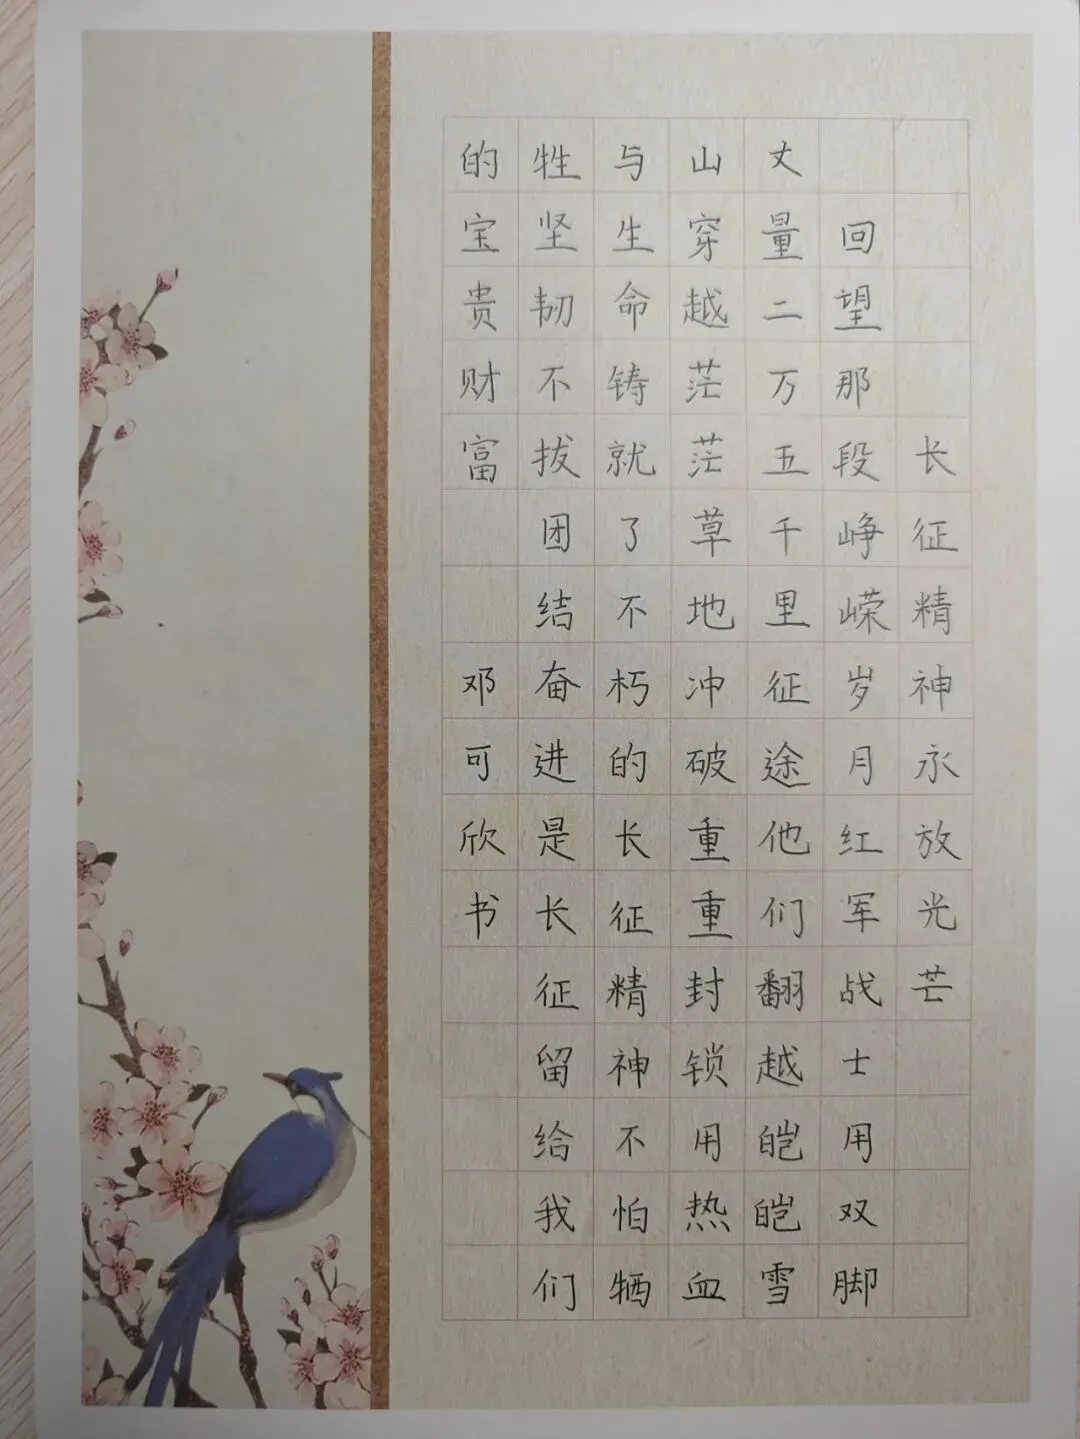 长征精神永放光芒
回望那段峥嵘岁月红军战士用双脚
丈量二万五千里征途他们翻越皑皑雪
山穿越茫茫草地冲破重重封锁用热血
与生命铸就了不朽的长征精神不怕牺
牲坚韧不拔团结奋进是长征留给我们
的宝贵财富 邓可欣书